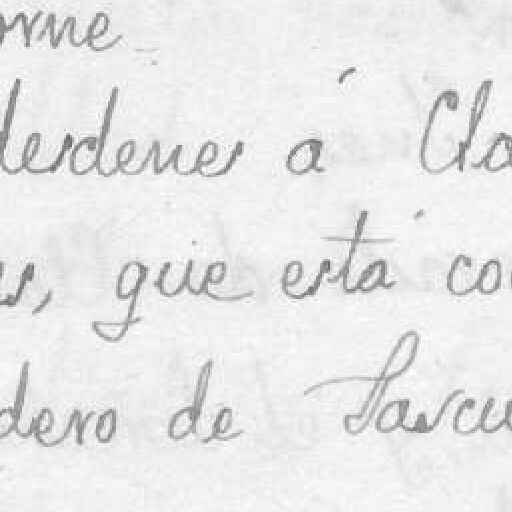 orne
desdenes á Cla
es, que está co
dero de Pascu